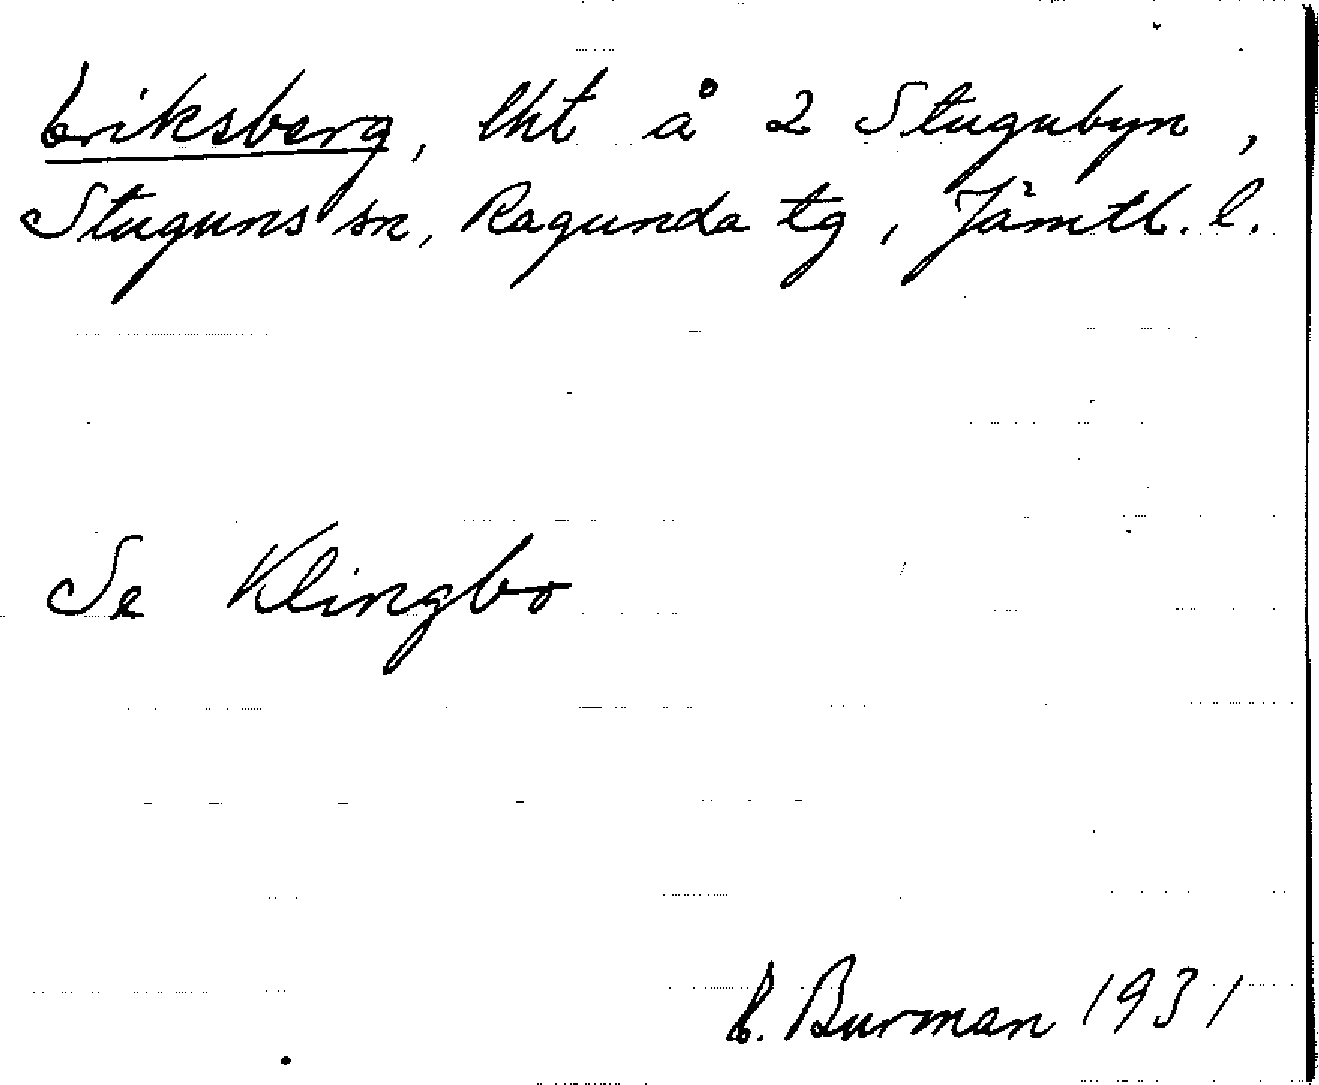 Eriksberg, lht å 2 Stugubyn,
Stuguns sn, Ragunda tg, Jämtl. l.
Se Klingbo
E. Burman 1931